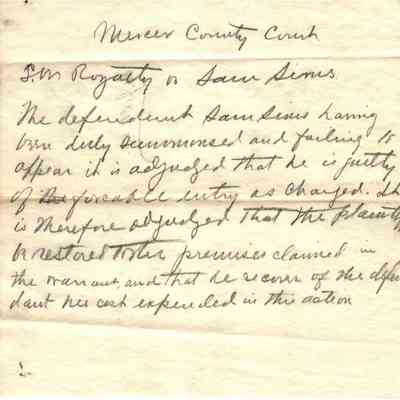 Mercer County Court
S.M Royalty vs Sam Sims
The defendent Sam Sims having
been duly summonsed and failing to
appear it is adjudged that he is guilty
of the forceable entry as charged. It
is therefore adjudged that the plaintif
be restored to the premises claimed in
the warrant, and that he recover of the defen
dant his cost expended in this action